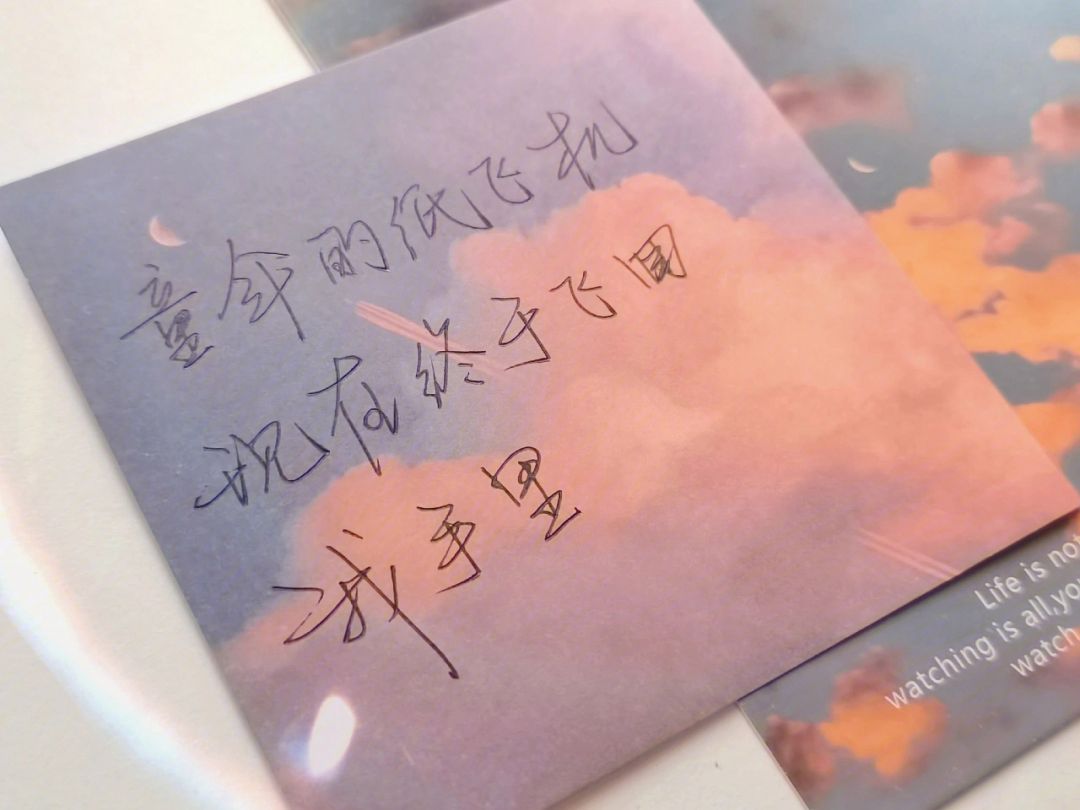 童年的纸飞机
现在终于飞回
我手里
Life is not
watching is all,you
watch